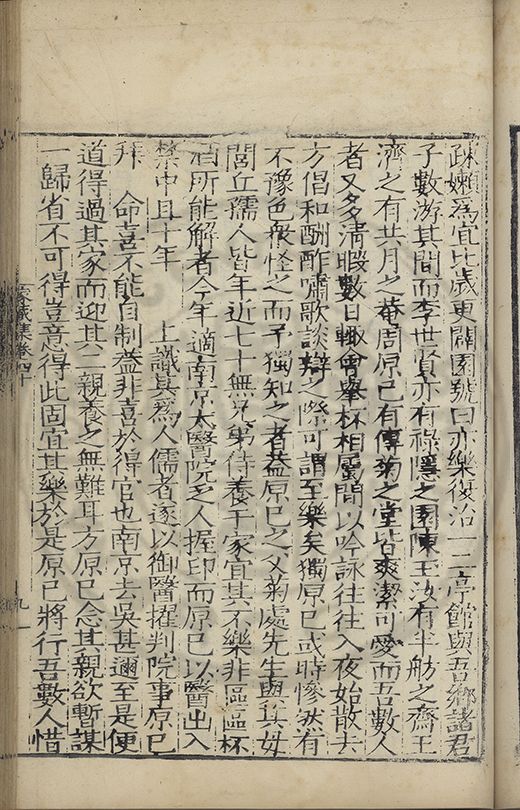 疎嬾為宜比歲更闢園號曰亦樂復治一二亭館與吾鄉諸君
子數游其間而李世賢亦有祿隱之園陳玉汝有半舫之齋王
濟之有共月之菴周原已有傳菊之堂皆爽潔可愛而吾數人
者又多清暇數日輒會舉杯相屬間以吟詠往往入夜始散夫
方倡和酬酢嘯歌談辯之際可謂至樂矣獨原已或時慘然有
不豫色衆怪之而予獨知之者蓋原已之父菊處先生與其母
閭丘孺人皆年近七十無兄弟待養于家宜其不樂非區區杯
酒所能解者今年適南京太醫院乏人握印而原已以醫出入
禁中且十年 上識其為人儒者遂以御醫擢判院事原已
拜 命喜不能自制蓋非喜於得官也南京去吳甚邇至是便
道得過其家而迎其二親養之無難耳方原已念其親欲暫謀
一歸省不可得豈意得此固宜其樂於是原已將行吾數人惜
家藏集卷四十